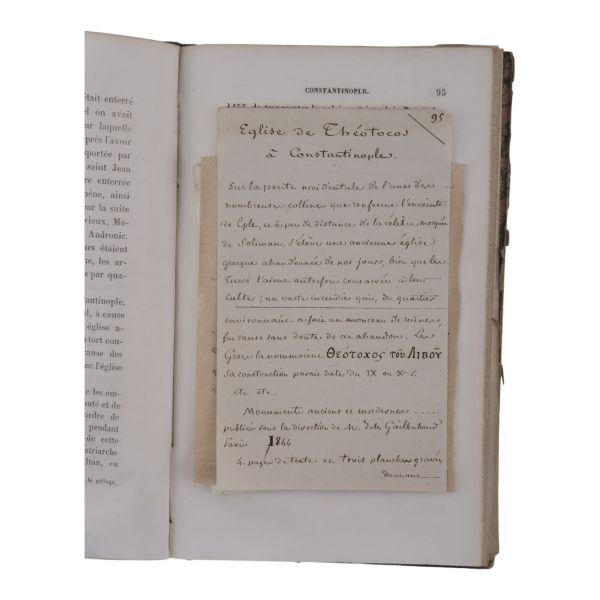 était enterré
el on avait
ur laquelle
près l'avoir
sportée par
saint Jean
re enterrée
mène, ainsi
par la suite
vieux, Ma-
Andronic.
urs étaient
ne, les ar-
s par qua-
antinople.
d, à cause
église a-
tort con-
ause des
vec l'église
ec les em-
auté et de
ordre de
pendant
de cette
atriarche
ltan, en
le pillage,
CONSTANTINOPLE. 95
95
Eglise de Théotocos
à Constantinople.
Sur la pente occidentale de l'une des
nombreuses collines que renferme l'enceinte
de Cple, et à peu de distance de la célèbre mosquée
de Soliman, s'élève une ancienne église
grecque abandonnée de nos jours, bien que les
Turcs l'aient autrefois consacrée à leur
culte; un vaste incendie qui, du quartier
environnant a fait un monceau de ruines,
fut cause sans doute de cet abandon. Les
Grecs la nommoient ΘΕΌΤΟΧΟΣ τοῦ ΛΙΒΟΥ
Sa construction parait dater du IX ou X s.
etc. etc.
Monuments anciens et modernes .....
publiés sous la direction de M. Jules Gailhabaud
Paris 1844
4. pages de texte et trois planches gravées